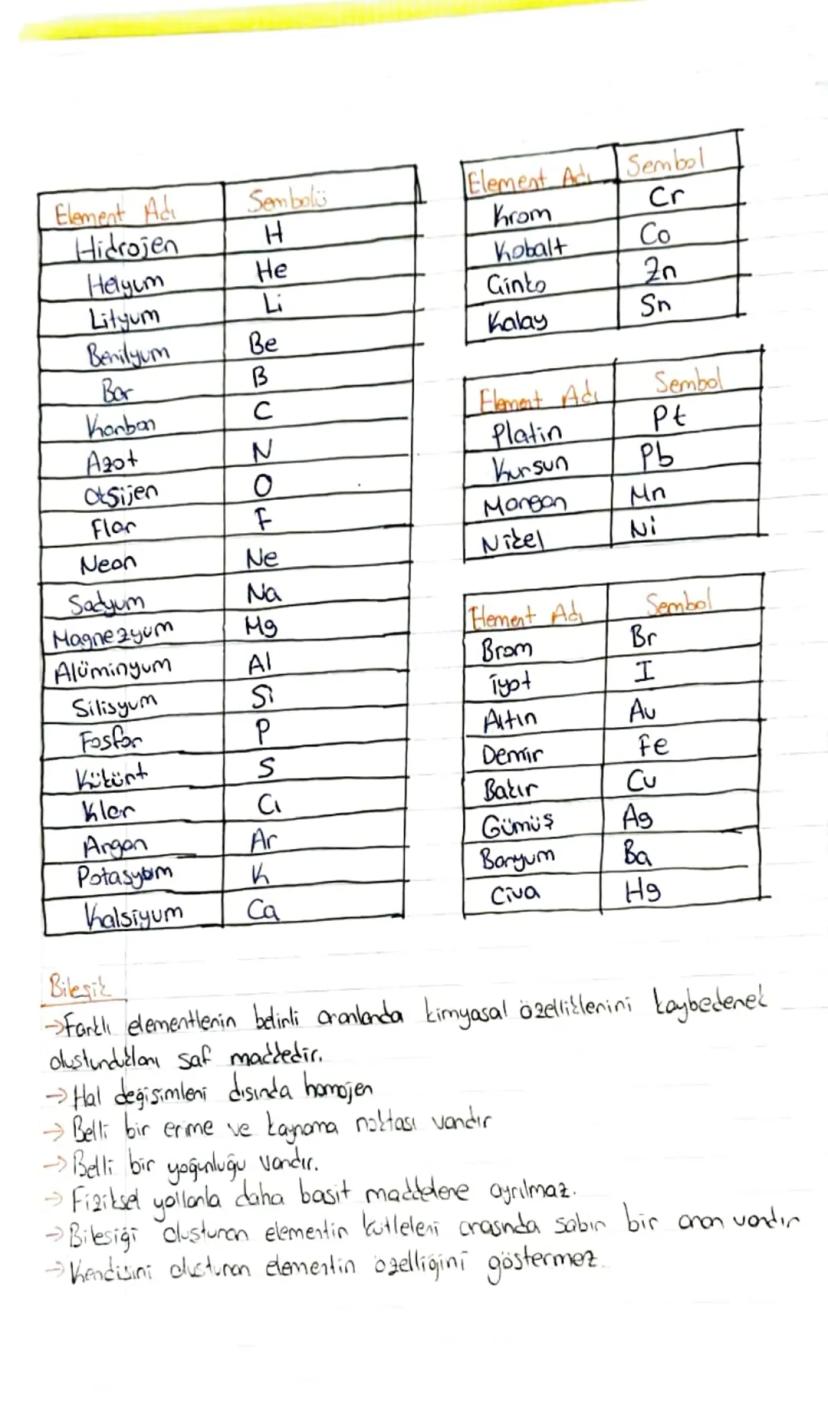 Element Adı Sembolü
Hidrojen H
Helyum He
Lityum Li
Berilyum Be
Bor B
Karbon C
Azot N
Oksijen O
Flor F
Neon Ne
Sodyum Na
Magnezyum Mg
Alüminyum Al
Silisyum Si
Fosfor P
Kükürt S
Klor Cı
Argon Ar
Potasyum K
Kalsiyum Ca
Element Adı Sembol
Krom Cr
Kobalt Co
Çinko Zn
Kalay Sn
Element Adı Sembol
Platin Pt
Kursun Pb
Mangan Mn
Nikel Ni
Element Adı Sembol
Brom Br
İyot I
Altın Au
Demir Fe
Bakır Cu
Gümüş Ag
Baryum Ba
Civa Hg
Bileşik
→Farklı elementlerin belirli oranlarda kimyasal özelliklerini kaybederek
oluşturdukları saf maddedir.
→Hal değişimleri dışında homojen
→Belli bir erime ve kaynama noktası vardır
→Belli bir yoğunluğu vardır.
→Fiziksel yollarla daha basit maddelere ayrılmaz.
→Bileşiği oluşturan elementin kütleleri arasında sabin bir oran vardır
→Kendisini oluşturan elementin özelliğini göstermez.